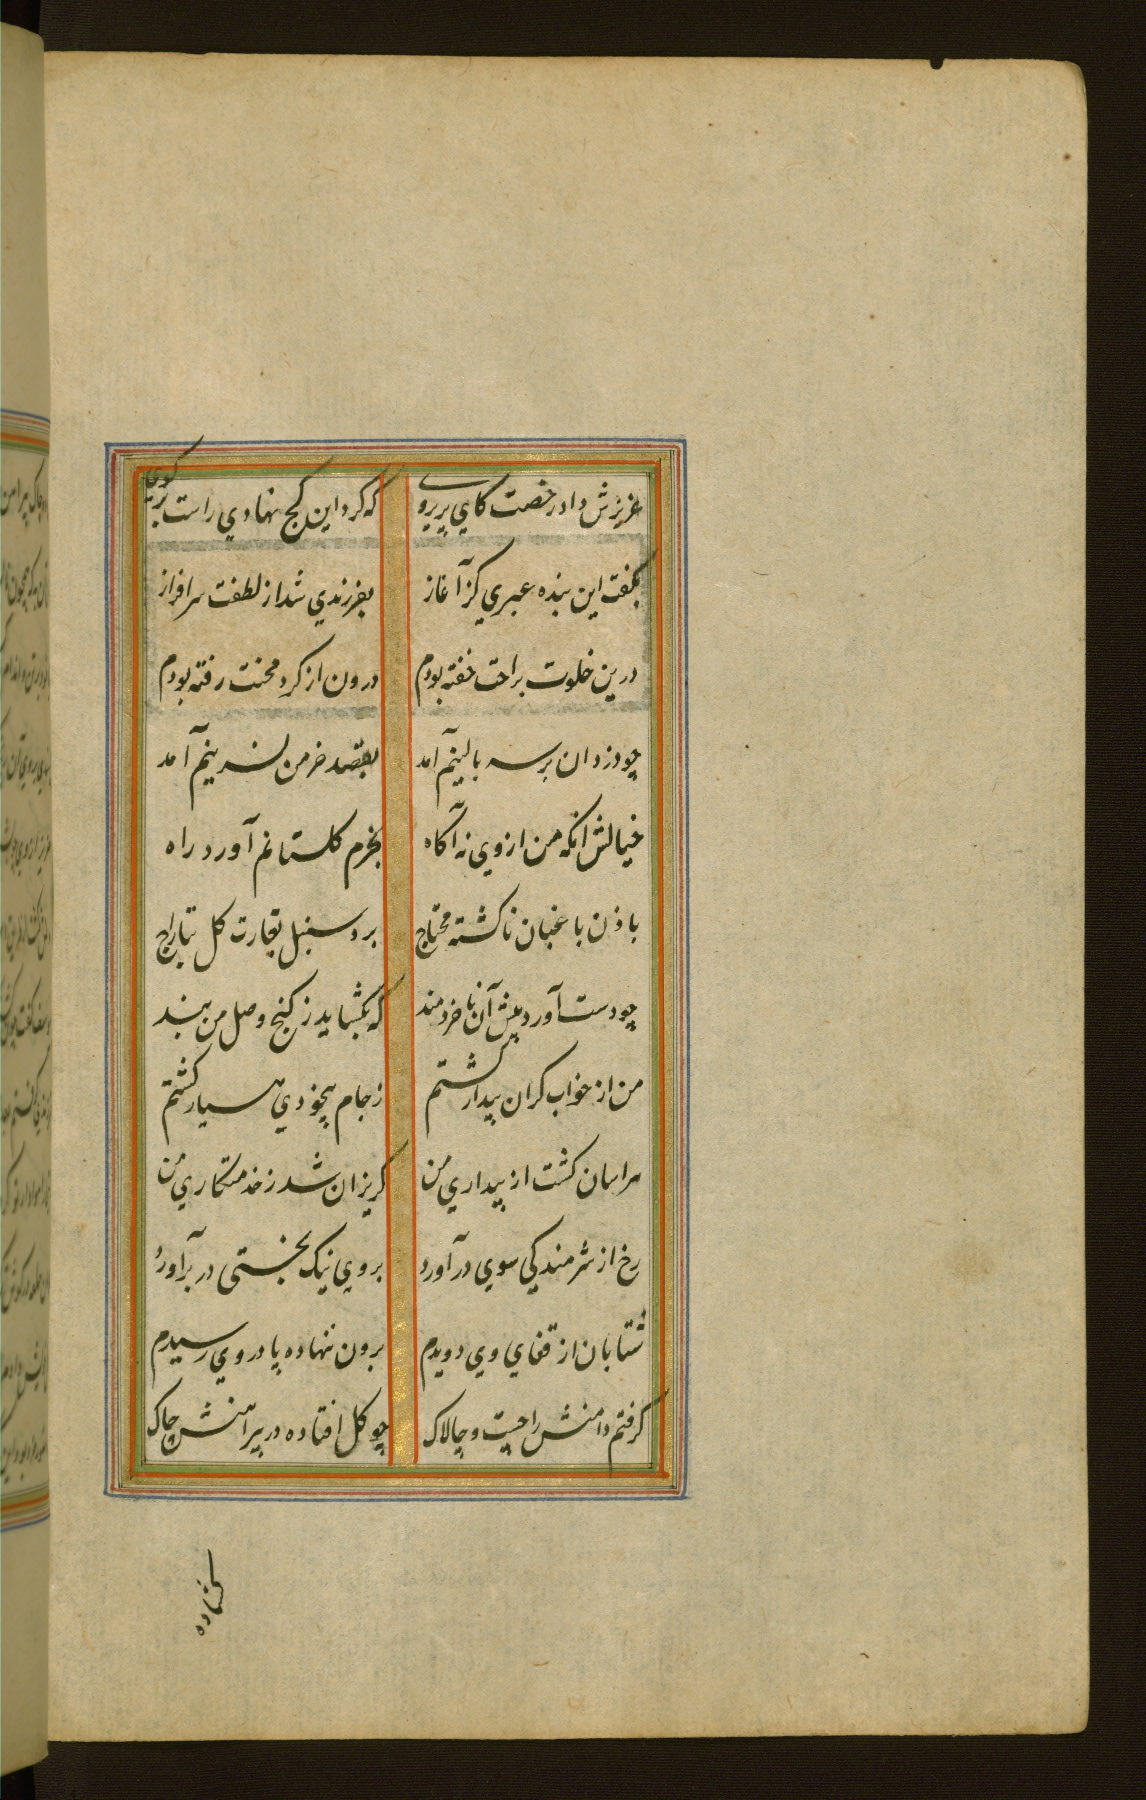 عزیزش داد رخصت کای پریروی که کرد این کج نهادی راست برگوی
بگفت این بنده عبری کز آغاز بفرزندی شد از لطفت سرافراز
درین خلوت براحت خفته بودم درون از کرد محنت رفته بودم
چو دزدان بر سر بالینم آمد بقصد خرمن نسرینم آمد
خیالش انکه من از وی نه آکاه بخرم کلستانم آورد راه
باذن باغبان ناکشته محتاج برد سنبل بغارت کل بتاراج
چو دست آورد پیش آن ناخردمند که بکشاید ز کنج وصل من بند
من از خواب کران بیدار کشتم ز جام بیخودی هسیار کشتم
هراسان کشت از بیداری من کریزان شد ز خدمتکاری من
رخ از شرمندکی سوی در آورد بروی نیک بختی در برآورد
شتابان از قفای وی دویدم برون ننهاده پا در وی رسیدم
کرفتم دامنش را چست و چالاک چو کل افتاده در پیراهنش چاک
کشاده